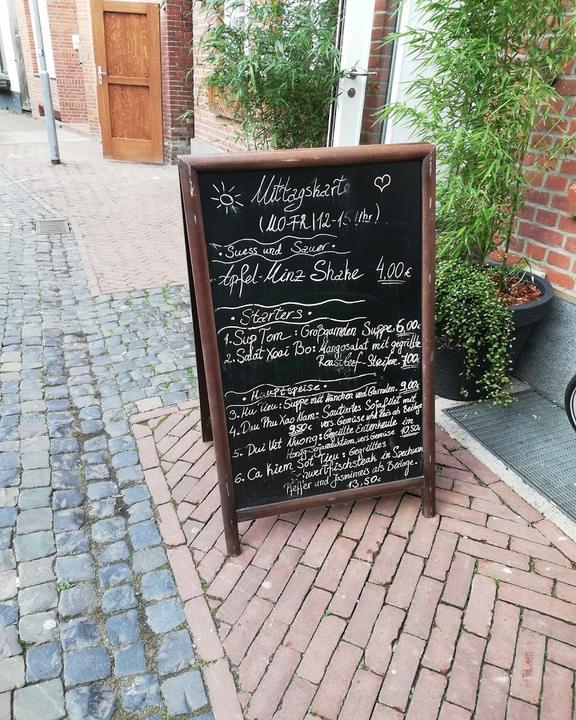 Mittagskarte
(MO-FR | 12-15 Uhr)
Suess und Sauer
Apfel-Minz Shake 4.00€
Starters
1. Sup Tom : Großgarnelen Suppe. 6,00€
2. Salat Xoai Bo: Mangosalat mit gegrillte
Roastbeef-Streifen. 7,00€
Hauptspeise
3. Hu Tieu: Suppe mit Hünchen und Garnelen. 9,00€
4. Dau Phu Xao Nam: Sautiertes Sojafilet mit
9,50€ vers Gemüse und Reis als Beilage
5. Dui Vit Nuong: Gegrillte Entenkeule in
Honig-Sojareduktion, vers Gemüse 10,50€
6. Ca Kiem Sot Tieu: Gegrilltes
Schwertfischsteak in Szechuan
Pfeffer und Jasminreis als Beilage.
13,50€